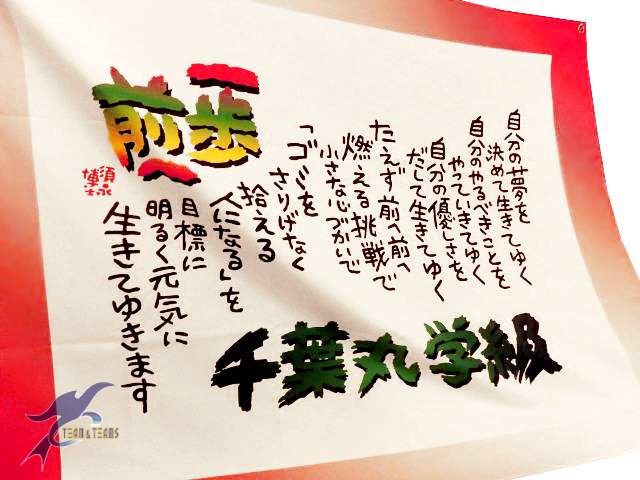 一歩
前へ
須永
博士
自分の夢を
決めて生きてゆく
自分のやるべきことを
やっていきてゆく
自分の優しさを
だして生きてゆく
たえず前へ前へ
燃える挑戦で
小さな心づかいで
「ゴミを
さりげなく
拾える
人になる」を
目標に
明るく元気に
生きてゆきます
千葉丸学級
TEAM & TEAMS